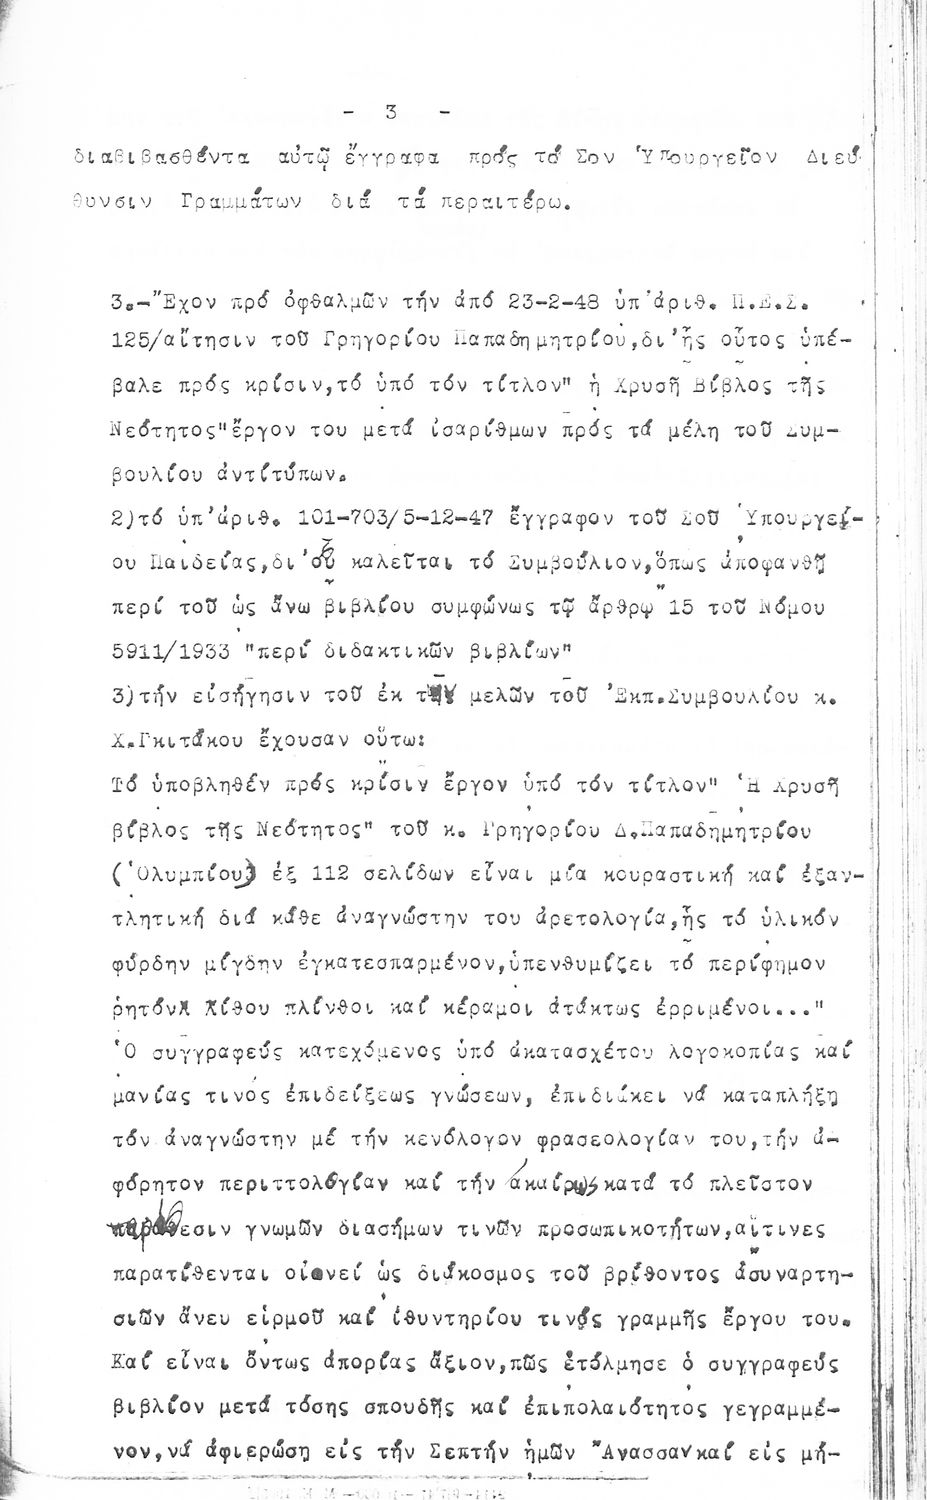 - 3 -
διαβιβασθέντα αὐτῷ ἔγγραφα πρός τό Σον Ὑπουργεῖον Διεύ-
θυνσιν Γραμμάτων διά τά περαιτέρω.
3.-Ἔχον πρό ὀφθαλμῶν τήν ἀπό 23-2-48 ὑπ'ἀριθ. Π.Ε.Σ.
125/αἴτησιν τοῦ Γρηγορίου Παπαδημητρίου,δι'ἧς οὗτος ὑπέ-
βαλε πρός κρίσιν,τό ὑπό τόν τίτλον" ἡ Χρυσῆ Βίβλος τῆς
Νεότητος"ἔργον του μετά ἰσαρίθμων πρός τά μέλη τοῦ Συμ-
βουλίου ἀντιτύπων.
2)τό ὑπ'ἀριθ. 101-703/5-12-47 ἔγγραφον τοῦ Σοῦ Ὑπουργεί-
ου Παιδείας,δι'οὗ καλεῖται τό Συμβούλιον,ὅπως ἀποφανθῇ
περί τοῦ ὡς ἄνω βιβλίου συμφώνως τῷ ἄρθρῳ 15 τοῦ Νόμου
5911/1933 "περί διδακτικῶν βιβλίων"
3)τήν εἰσήγησιν τοῦ ἐκ τῶν μελῶν τοῦ Ἐκπ.Συμβουλίου κ.
Χ.Γκιτάκου ἔχουσαν οὕτω:
Τό ὑποβληθέν πρός κρίσιν ἔργον ὑπό τόν τίτλον" Ἡ Χρυσῆ
βίβλος τῆς Νεότητος" τοῦ κ. Γρηγορίου Δ.Παπαδημητρίου
(Ὀλυμπίου) ἐξ 112 σελίδων εἶναι μία κουραστική καί ἐξαν-
τλητική διά κάθε ἀναγνώστην του ἀρετολογία,ἧς τό ὑλικόν
φύρδην μίγδην ἐγκατεσπαρμένον,ὑπενθυμίζει τό περίφημον
ῥητόν λίθου πλίνθοι καί κέραμοι ἀτάκτως ἐρριμένοι..."
Ὁ συγγραφεύς κατεχόμενος ὑπό ἀκατασχέτου λογοκοπίας καί
μανίας τινός ἐπιδείξεως γνώσεων, ἐπιδιώκει νά καταπλήξῃ
τόν ἀναγνώστην μέ τήν κενόλογον φρασεολογίαν του,τήν ἀ-
φόρητον περιττολογίαν καί τήν ἀκαίρως κατά τό πλεῖστον
παράθεσιν γνωμῶν διασήμων τινῶν προσωπικοτήτων,αἵτινες
παρατίθενται οἱονεί ὡς διάκοσμος τοῦ βρίθοντος ἀσυναρτη-
σιῶν ἄνευ εἱρμοῦ καί ἰθυντηρίου τινός γραμμῆς ἔργου του.
Καί εἶναι ὄντως ἀπορίας ἄξιον,πῶς ἐτόλμησε ὁ συγγραφεύς
βιβλίον μετά τόσης σπουδῆς καί ἐπιπολαιότητος γεγραμμέ-
νον,νά ἀφιερώσῃ εἰς τήν Σεπτήν ἡμῶν Ἄνασσαν καί εἰς μή-